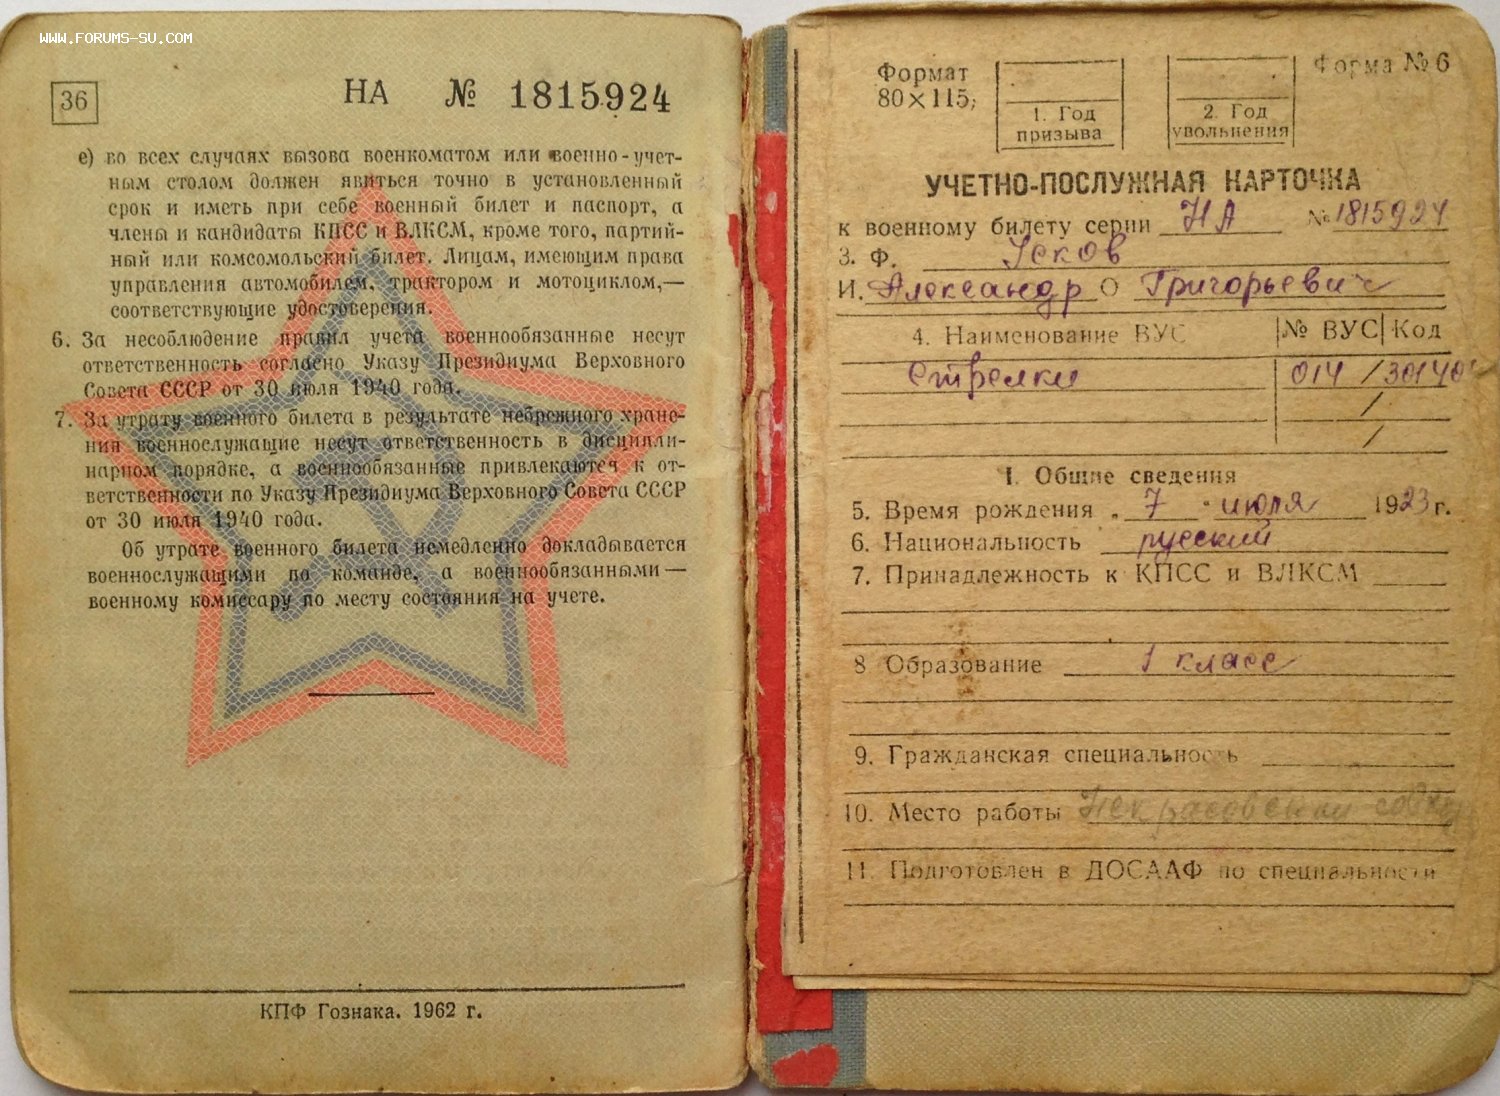 WWW.FORUMS-SU.COM
36
НА № 1815924
е) во всех случаях вызова военкоматом или военно-учет-
ным столом должен явиться точно в установленный
срок и иметь при себе военный билет и паспорт, а
члены и кандидаты КПСС и ВЛКСМ, кроме того, партий-
ный или комсомольский билет. Лицам, имеющим права
управления автомобилем, трактором и мотоциклом,—
соответствующие удостоверения.
6. За несоблюдение правил учета военнообязанные несут
ответственность согласно Указу Президиума Верховного
Совета СССР от 30 июля 1940 года.
7. За утрату военного билета в результате небрежного хране-
ния военнослужащие несут ответственность в дисципли-
нарном порядке, а военнообязанные привлекаются к от-
ветственности по Указу Президиума Верховного Совета СССР
от 30 июля 1940 года.
Об утрате военного билета немедленно докладывается
военнослужащими по команде, а военнообязанными —
военному комиссару по месту состояния на учете.
КПФ Гознака. 1962 г.
Формат
80×115,
1. Год
призыва
2. Год
увольнения
Форма № 6
УЧЕТНО-ПОСЛУЖНАЯ КАРТОЧКА
к военному билету серии НА № 1815924
3. Ф. Усков
И. Александр О Григорьевич
4. Наименование ВУС № ВУС Код
Стрелки 014 /
/
/
I. Общие сведения
5. Время рождения „ 7 " июля 1923 г.
6. Национальность русский
7. Принадлежность к КПСС и ВЛКСМ
8 Образование 1 класс
9. Гражданская специальность
10. Место работы Некрасовский
11. Подготовлен в ДОСААФ по специальности